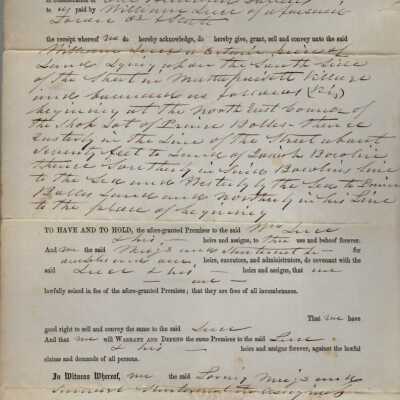 to us paid by William Luce of aforesaid
the receipt whereof we do hereby acknowledge, do hereby give, grant, sell and convey unto the said
William Luce a Certain piece of
Land Lying upon the South Side
of the Street in Mattapoisett Village
and bounded as follows (viz)
begining at the North East Corner of
the Lot of Prince Bolles thence
Easterly in the Line of the Street about
Seventy feet to Land of Bowlin
thence in Said Bowlins line
to the Sea and Westerly by the Sea to Prince
Bolles Land and northerly in his Line
to the place of begining
TO HAVE AND TO HOLD, the afore-granted Premises to the said Luce
& his heirs and assigns, to their use and behoof forever.
And we the said Meigs and for
heirs, executors, and administrators, do covenant with the
said Luce & his heirs and assigns, that we
are
lawfully seized in fee of the afore-granted Premises; that they are free of all incumbrances.
That we have
good right to sell and convey the same to the said Luce
And that we will WARRANT AND DEFEND the same Premises to the said Luce
& his heirs and assigns forever, against the lawful
claims and demands of all persons.
In Witness Whereof, we the said Loring Meigs and